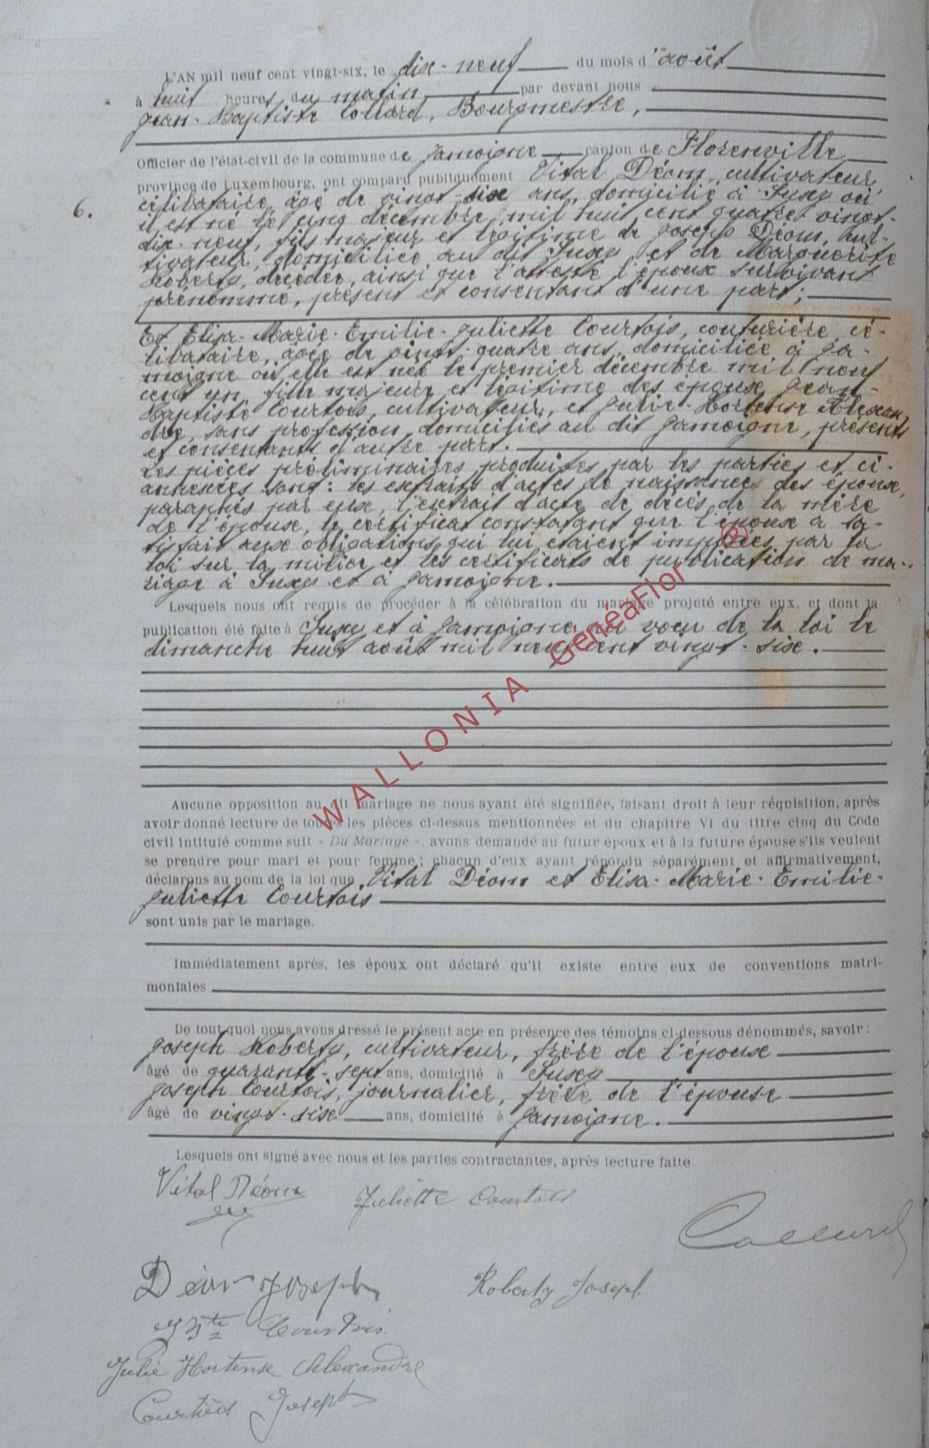 L'AN mil neuf cent vingt-six, le dix-neuf du mois d'août
à huit heures du matin par devant nous
Jean-Baptiste Collard, Bourgmestre,
Officier de l'état-civil de la commune de Jamoigne canton de Florenville
province de Luxembourg, ont comparu publiquement Vital Déom, cultivateur,
6. célibataire, âgé de vingt-six ans, domicilié à Suxy où
il est né le cinq décembre mil huit cent quatre vingt-
dix-neuf, fils majeur et légitime de Joseph Déom, cul-
tivateur, domiciliée au dit Suxy, et de Marguerite
Roberty, décédée, ainsi que l'atteste l'époux survivant
prénommé, présent et consentant d'une part;
Et Elisa-Marie-Emilie-Juliette Courtois, couturière, cé-
libataire, âgée de vingt-quatre ans, domiciliée à Ja-
moigne où elle est née le premier décembre mil neuf
cent un, fille majeure et légitime des époux Jean-
Baptiste Courtois, cultivateur, et Julie-Hortense Alexan-
dre, sans profession, domiciliés au dit Jamoigne, présents
et consentants d'autre part.
Les pièces préliminaires produites par les parties et ci-
annexées sont: les extraits d'actes de naissances des époux,
paraphés par eux, l'extrait d'acte de décès de la mère
de l'épouse, le certificat constatant que l'époux a sa-
tisfait aux obligations qui lui étaient imposées par la
loi sur la milice et les certificats de publication de ma-
riage à Suxy et à Jamoigne.
Lesquels nous ont requis de procéder à la célébration du mariage projeté entre eux, et dont la
publication été faite à Suxy et à Jamoigne au voeu de la loi le
dimanche huit août mil neuf cent vingt-six.
WALLONIA GeneaFlor ®
Aucune opposition au dit mariage ne nous ayant été signifiée, faisant droit à leur réquisition, après
avoir donné lecture de toutes les pièces ci-dessus mentionnées et du chapitre VI du titre cinq du Code
civil intitulé comme suit « Du Mariage ». avons demandé au futur époux et à la future épouse s'ils veulent
se prendre pour mari et pour femme; chacun d'eux ayant répondu séparément et affirmativement,
déclarons au nom de la loi que Vital Déom et Elisa-Marie-Emilie-
Juliette Courtois
sont unis par le mariage.
Immédiatement après, les époux ont déclaré qu'il existe entre eux de conventions matri-
moniales
De tout quoi nous avons dressé le présent acte en présence des témoins ci-dessous dénommés, savoir:
Joseph Roberty, cultivateur, frère de l'épouse
âgé de quarante-sept ans, domicilié à Suxy
Joseph Courtois, journalier, frère de l'épouse
âgé de vingt-six ans, domicilié à Jamoigne.
Lesquels ont signé avec nous et les parties contractantes, après lecture faite
Vital Déom Juliette Courtois
Collard
Déom Joseph Roberty Joseph
J Bte Courtois
Julie Hortense Alexandre
Courtois Joseph